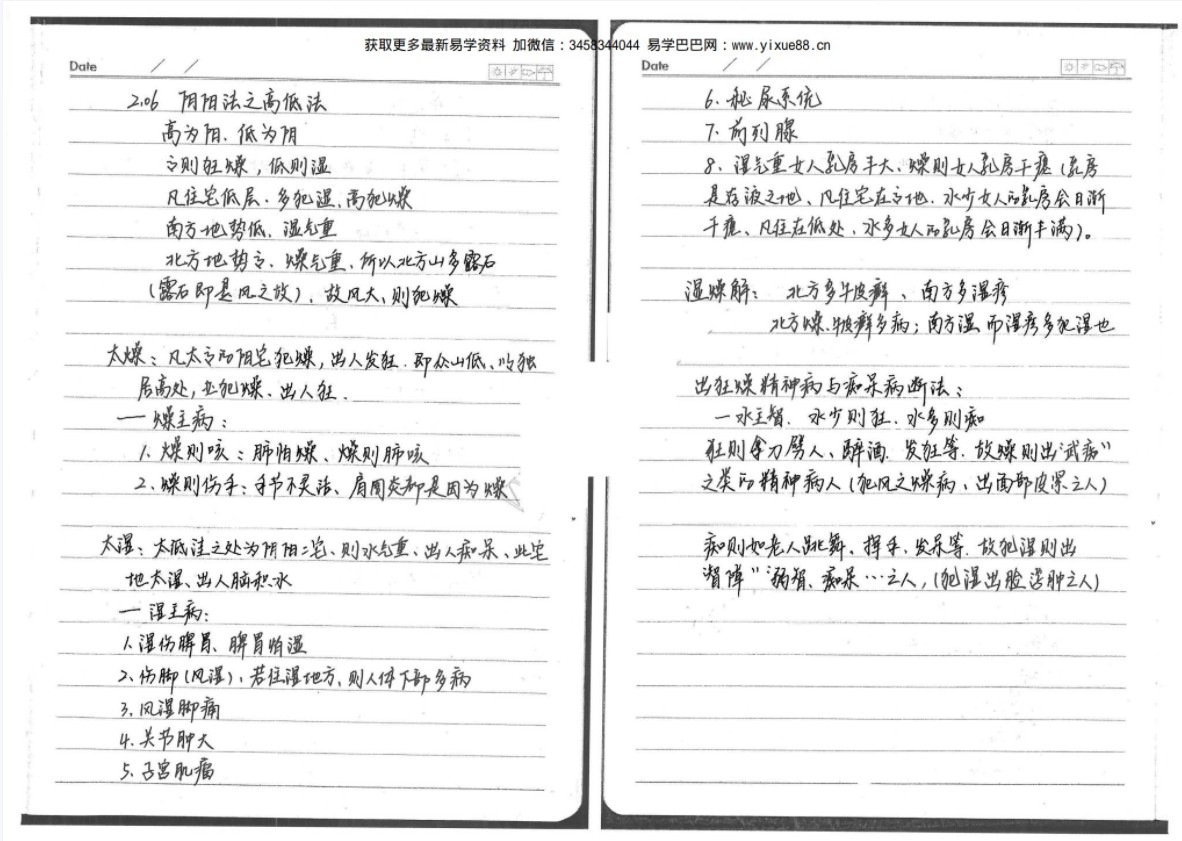 获取更多最新易学资料 加微信：3458344044 易学巴巴网：www.yixue88.cn
Date / /
2.06 阴阳法之高低法
高为阳、低为阴
高则狂燥，低则湿
凡住宅低层、多犯湿、高犯燥
南方地势低、湿气重
北方地势高、燥气重、所以北方山多露石
(露石即是风之故)，故风大、则犯燥
太燥：凡太高的阳宅犯燥，出人发狂．即众山低、必独
居高处，也犯燥、出人狂．
一 燥主病：
1、燥则咳：肺怕燥、燥则肺咳
2、燥则伤手：手节不灵活、肩周炎都是因为燥
太湿：太低洼之处为阴阳二宅、则水气重、出人痴呆、此宅
地太湿、出人脑积水
一 湿主病：
1、湿伤脾胃、脾胃怕湿
2、伤脚(风湿)、若住湿地方、则人体下部多病
3、风湿脚痛
4、关节肿大
5、子宫肌瘤
Date / /
6、秘尿系统
7、前列腺
8、湿气重女人乳房丰大、燥则女人乳房干瘪(乳房
是存液之地、凡住宅在高地、水少女人的乳房会日渐
干瘪、凡住在低处、水多女人的乳房会日渐丰满)。
湿燥解： 北方多牛皮癣、南方多湿疹
北方燥、牛皮癣多病；南方湿而湿疹多犯湿也
出狂燥精神病与痴呆病断法：
一水主智．水少则狂．水多则痴
狂则拿刀劈人、醉酒、发狂等．故燥则出“武病”
之类的精神病人(犯风之燥病、出面部皮黑之人)
痴则如老人跳舞、挥手、发呆等．故犯湿则出
“智障”弱智、痴呆…之人，(犯湿出脸浮肿之人)